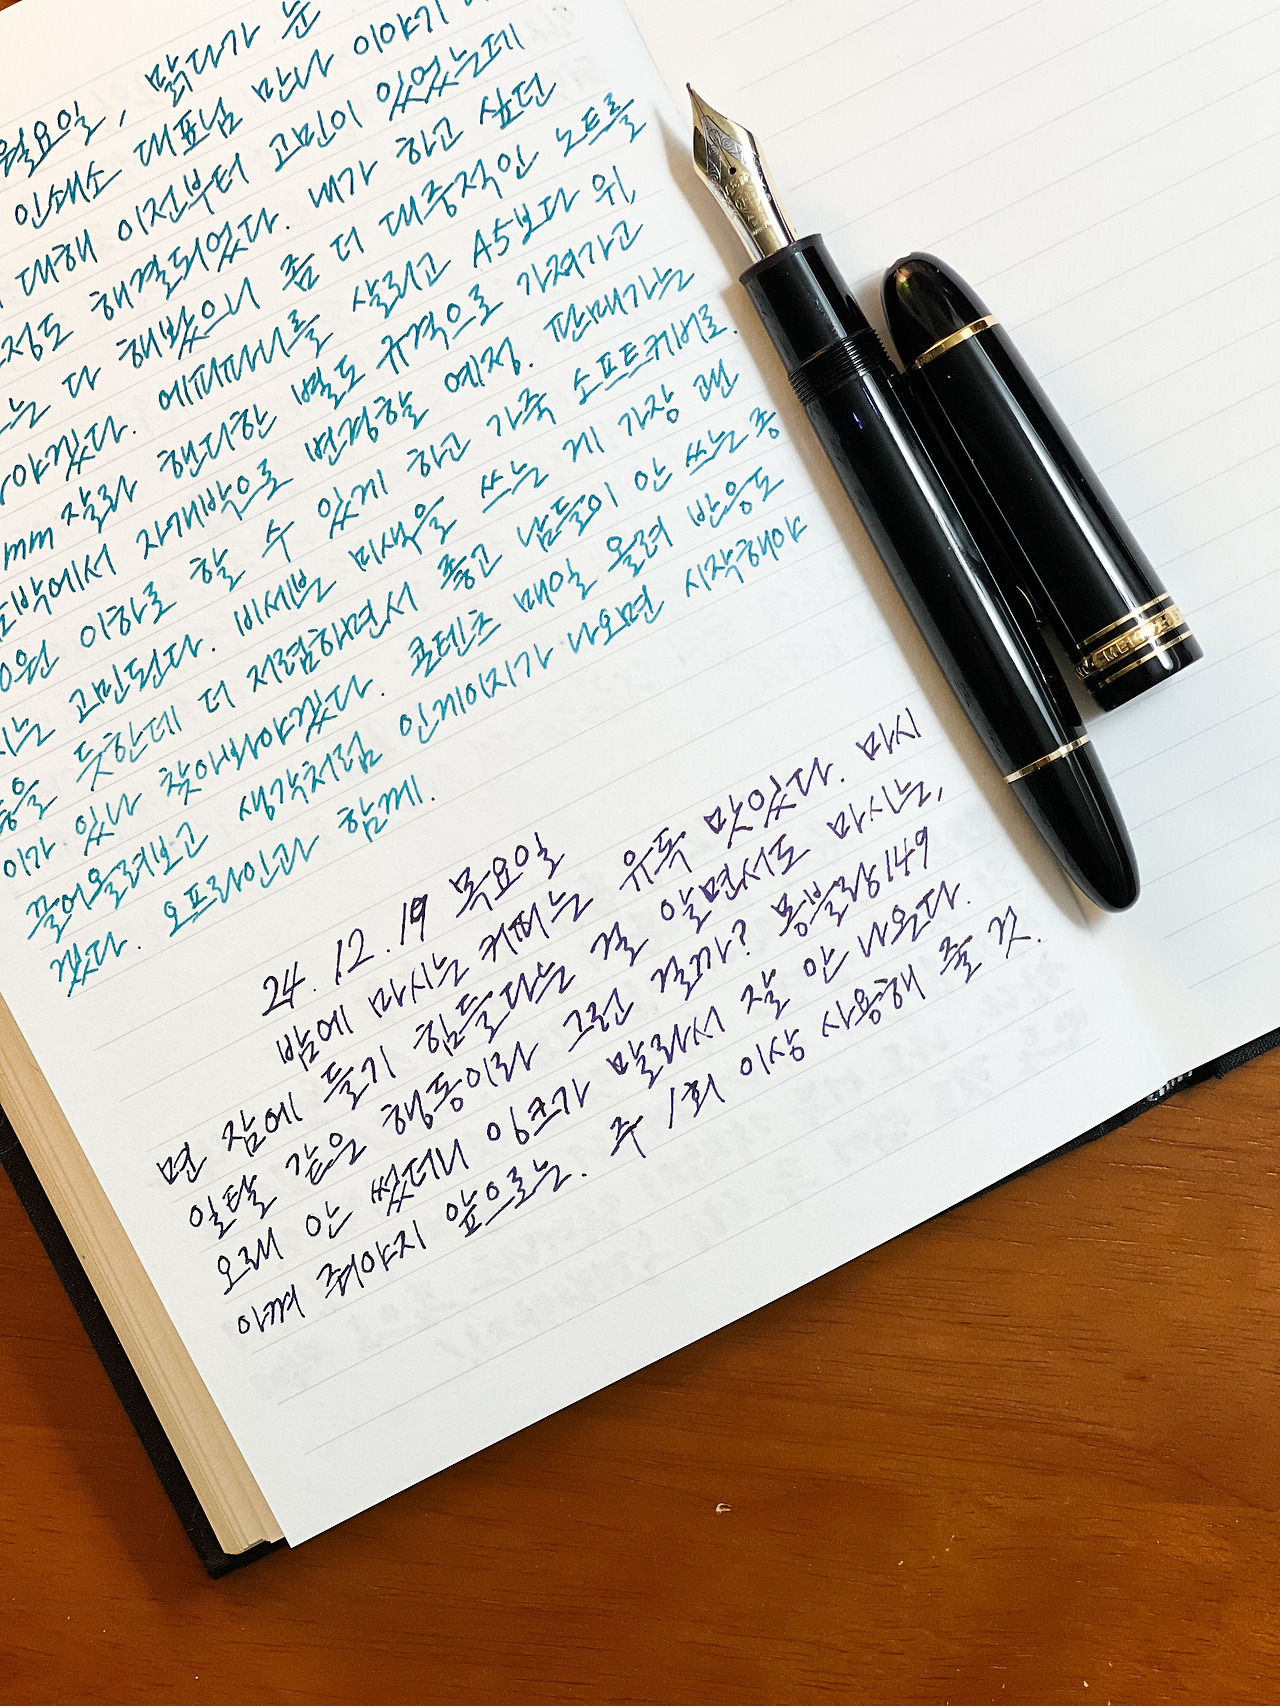 월요일, 맑다가 눈
인쇄소 대표님 만나 이야기
대해 이전부터 고민이 있었는데
정도 해결되었다. 내가 하고 싶던
는 다 해봤으니 좀 더 대중적인 노트를
야겠다. 에피파니를 살리고 A5보다 위,
mm 잘라 핸디한 별도 규격으로 가져가고
박에서 자개박으로 변경할 예정. 판매가는
0원 이하로 할 수 있게 하고 가죽 소프트커버로.
는 고민된다. 비세븐 미색을 쓰는 게 가장 괜
을 듯한데 더 저렴하면서 좋고 남들이 안 쓰는 종
이가 있나 찾아봐야겠다. 콘텐츠 매일 올려 반응도
끌어올려보고 생각처럼 인게이지가 나오면 시작해야
겠다. 오프라인과 함께.
24. 12. 19 목요일
밤에 마시는 커피는 유독 맛있다. 마시
면 잠에 들기 힘들다는 걸 알면서도 마시는,
일탈 같은 행동이라 그런 걸까? 몽블랑149
오래 안 썼더니 잉크가 말라서 잘 안 나온다.
아껴 줘야지 앞으로는. 주 1회 이상 사용해 줄 것.